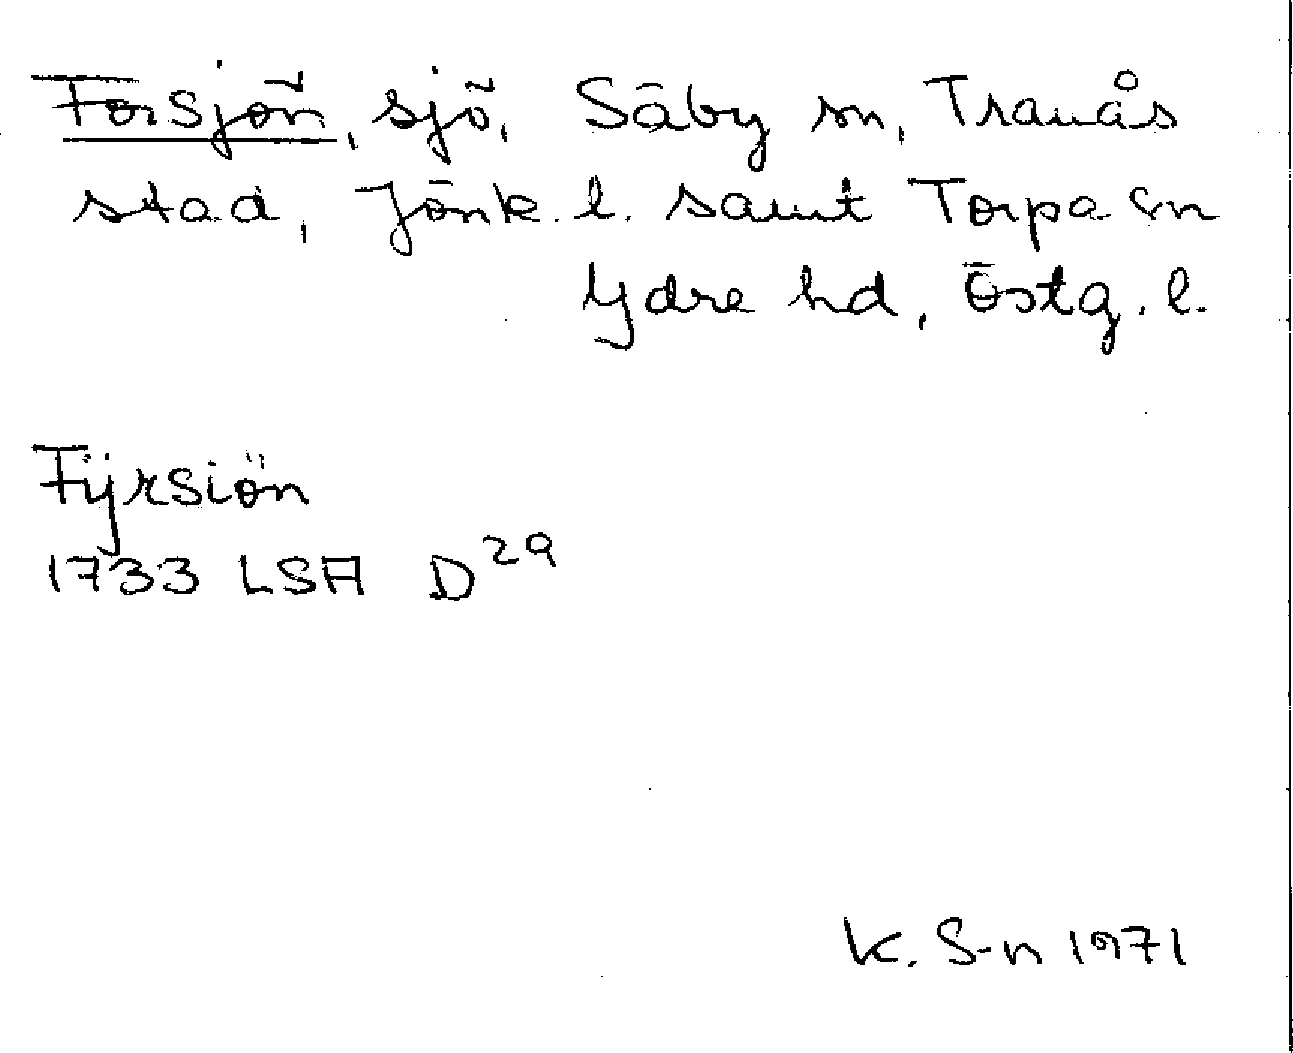 Försjön, sjö, Säby sn, Tranås
stad, Jönk. l. samt Torpa sn
Ydre hd, Östg. l.
Fÿrsiön
1733 LSA D 29
K. S-n 1971